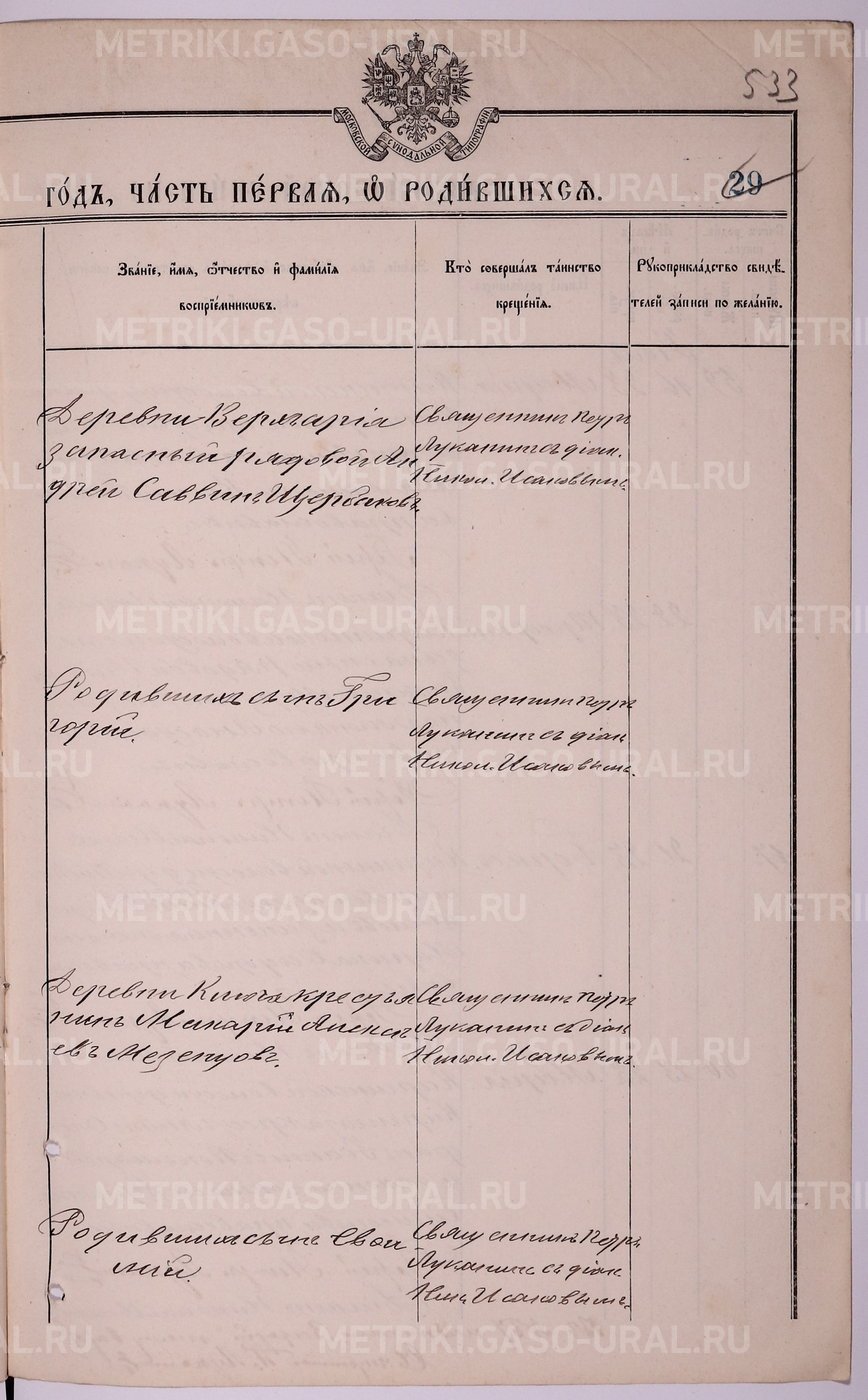 533
МОСКОВСКОЙ СѴНОДАЛЬНОЙ ТИПОГРАФІИ
ГО́ДЪ, ЧА́СТЬ ПЕ́РВАЯ, Ѡ РОДИ́ВШИХСЯ.
29
Зва́ніе, и́мя, ѻ́тчество и фами́лія
воспріе́мниковъ.
Кто̀ соверша́лъ та́инство
креще́нія.
Рукоприкла́дство свидѣ́-
телей за́писи по жела́нію.
Деревни Верхъарія
запасный рядовой Ан
дрей Саввинъ Щербаковъ.
Священникъ Петръ
Луканинъ съ діак.
Никол. Исаковымъ.
Родившихъ сынъ Гри
горій.
Священникъ Петръ
Луканинъ съ діак
Никол. Исаковымъ.
Деревни Ключа крестья
нинъ Макарій Алексѣ
евъ Мезенцовъ.
Священникъ Петръ
Луканинъ съ діак
Никол. Исаковымъ.
Родившихъ сынъ
Священникъ Петръ
Луканинъ съ діак.
Ник. Исаковымъ.
METRIKI.GASO-URAL.RU